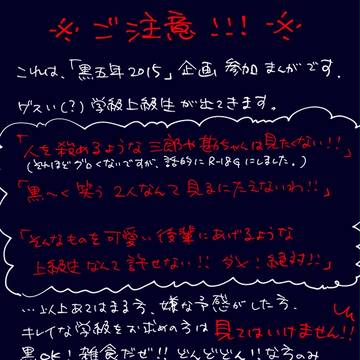 ※ご注意!!!※
これは、「黒五年2015」企画 参加 まんがです。
ゲスい(?) 学級上級生が出てきます。
「人を殺めるような 三郎や勘ちゃんは見たくない!!」
(それほどグロくないですが、話的に R-18Gにしました。)
「黒〜く 笑う 2人なんて 見るにたえないわ!!」
「そんなものを可愛い後輩にあげるような
上級生なんて 許せない!! ダメ!絶対!!」
…以上あてはまる方、嫌な予感がした方、
キレイな学級をお求めの方は 見てはいけません!!
黒OK!雑食だぜ!! どんとどん!!な方のみ